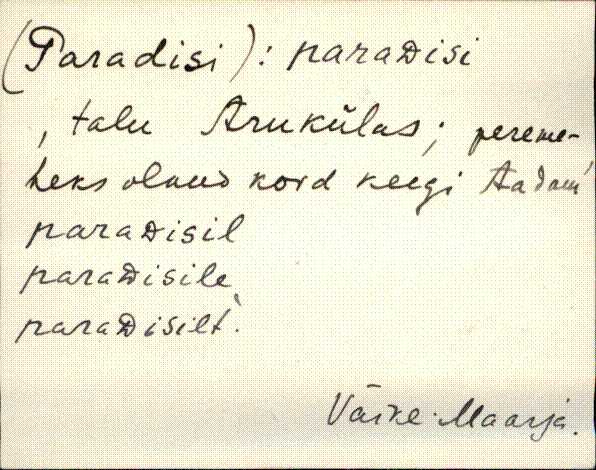 (Paradisi): paraDisi
, talu Arukülas; pereme-
heks olnuD korD keegi AaDam
paraDisil
paraDisile
paraDisilt.
Väike-Maarja.